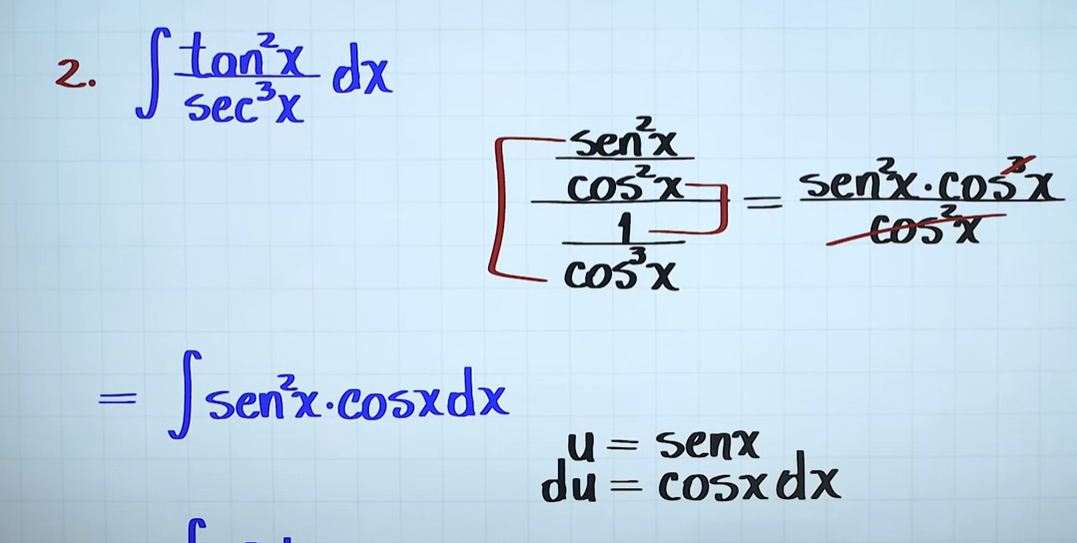 2. ∫ tan²x / sec³x dx
sen²x / cos²x / 1 / cos³x = sen²x · cos³x / cos²x
= ∫ sen²x · cosx dx
u = senx
du = cosx dx